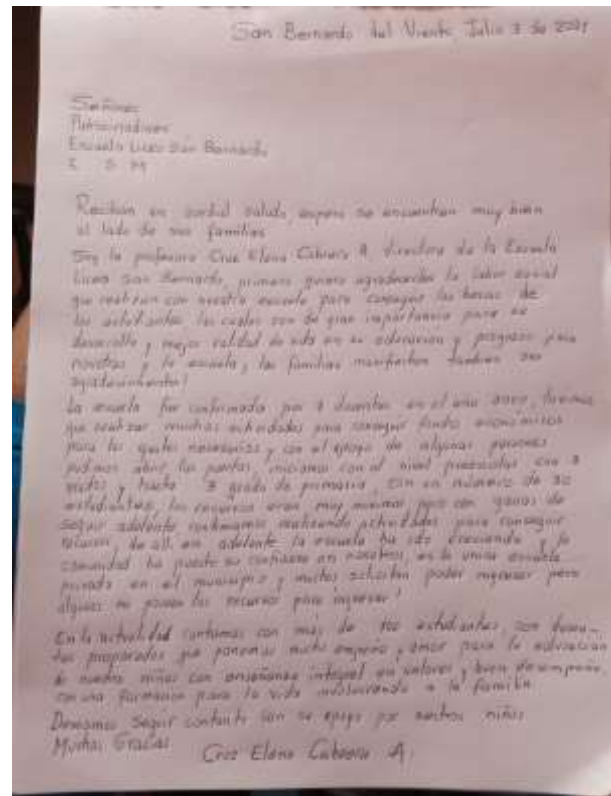 San Bernardo del Viento Julio 3 de 2021
Señores
Patrocinadores
Escuela Liceo San Bernardo
E S M
Reciban un cordial saludo, espero se encuentren muy bien
al lado de sus familias
Soy la profesora Cruz Elena Cabrera A, directora de la Escuela
Liceo San Bernardo, primero quiero agradecerles la labor social
que realizan con nuestra escuela para conseguir las becas de
los estudiantes las cuales son de gran importancia para su
desarrollo y mejor calidad de vida en su educacion y progreso para
nosotros y la escuela, las familias manifiestan tambien sus
agradecimientos!
La escuela fue conformada por 3 docentes en el año tuvimos
que realizar muchas actividades para conseguir fondos economicos
para los gastos necesarios y con el apoyo de algunas personas
pudimos abrir las puertas, iniciamos con el nivel preescolar con 3
y hasta 3 grado de primaria, con un número de 30
estudiantes, los recursos eran muy minimos pero con ganas de
seguir adelante continuamos realizando actividades para conseguir
de alli en adelante la escuela ha ido creciendo y la
comunidad ha puesto su confianza en nosotros, es la unica escuela
privada en el municipio y muchos solicitan poder ingresar pero
algunos no poseen los recursos para ingresar!
En la actualidad contamos con más de 100 estudiantes, con docen-
tes preparados que ponemos mucho empeño y amor para la educacion
de nuestros niños con enseñanza integral en valores y buen desempeño,
con una formacion para la vida involucrando a la familia
Deseamos seguir contando con su apoyo por nuestros niños
Muchas Gracias
Cruz Elena Cabrera A.